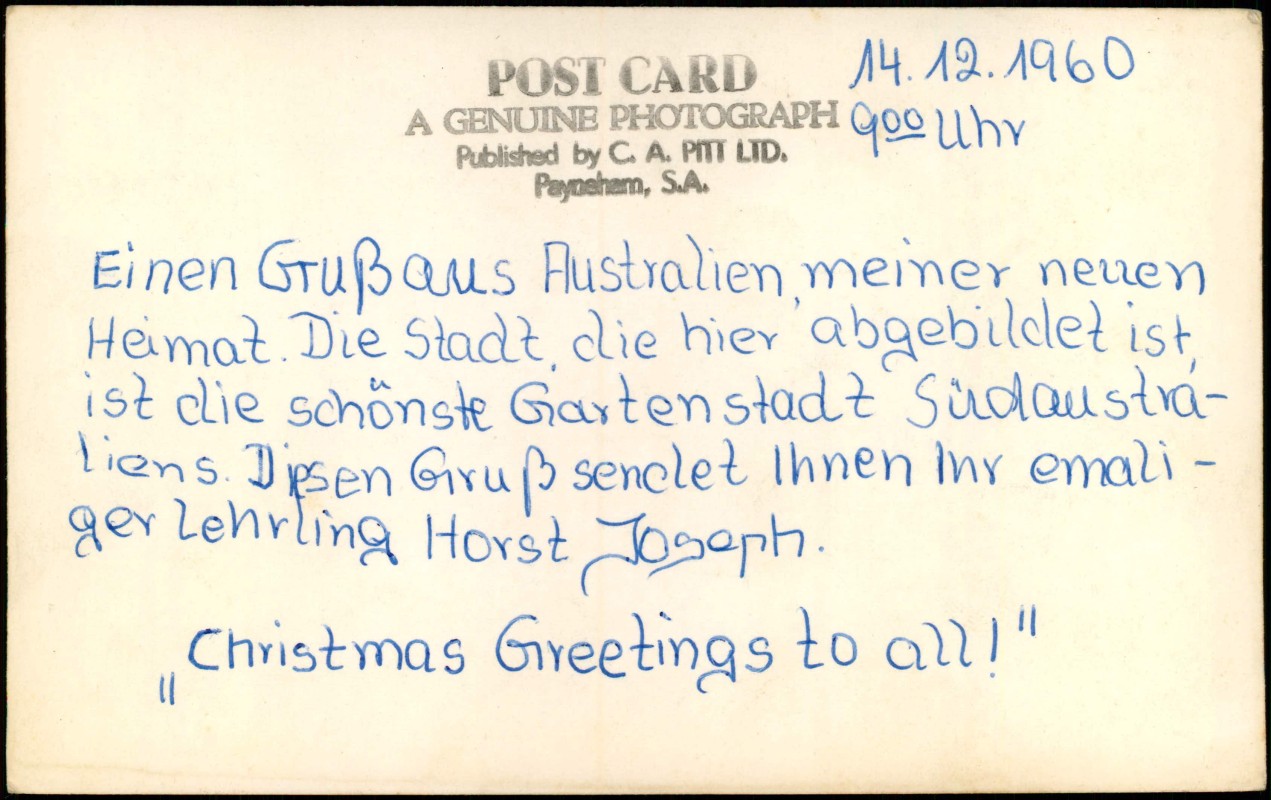 POST CARD
A GENUINE PHOTOGRAPH
Published by C. A. PITT LTD.
Payneham, S.A.
14.12.1960
9⁰⁰ Uhr
Einen Gruß aus Australien, meiner neuen
Heimat. Die Stadt, die hier abgebildet ist,
ist die schönste Gartenstadt Südaustra-
liens. Diesen Gruß sendet Ihnen Ihr emali-
ger Lehrling Horst Joseph.
„Christmas Greetings to all!"